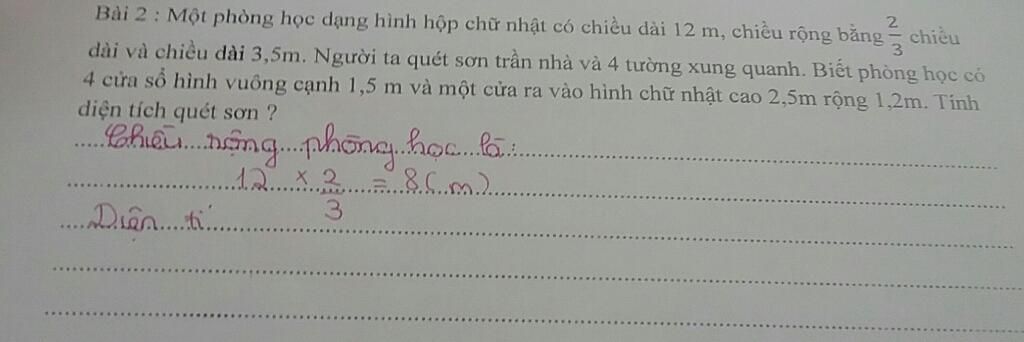 Bài 2 : Một phòng học dạng hình hộp chữ nhật có chiều dài 12 m, chiều rộng bằng 2/3 chiều
dài và chiều dài 3,5m. Người ta quét sơn trần nhà và 4 tường xung quanh. Biết phòng học có
4 cửa sổ hình vuông cạnh 1,5 m và một cửa ra vào hình chữ nhật cao 2,5m rộng 1,2m. Tính
diện tích quét sơn ?
Chiều rộng phòng học là:
12 × 2/3 = 8 (m)
Diện tí